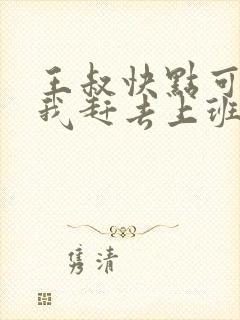 王叔快點可
我赶去上班
隽清